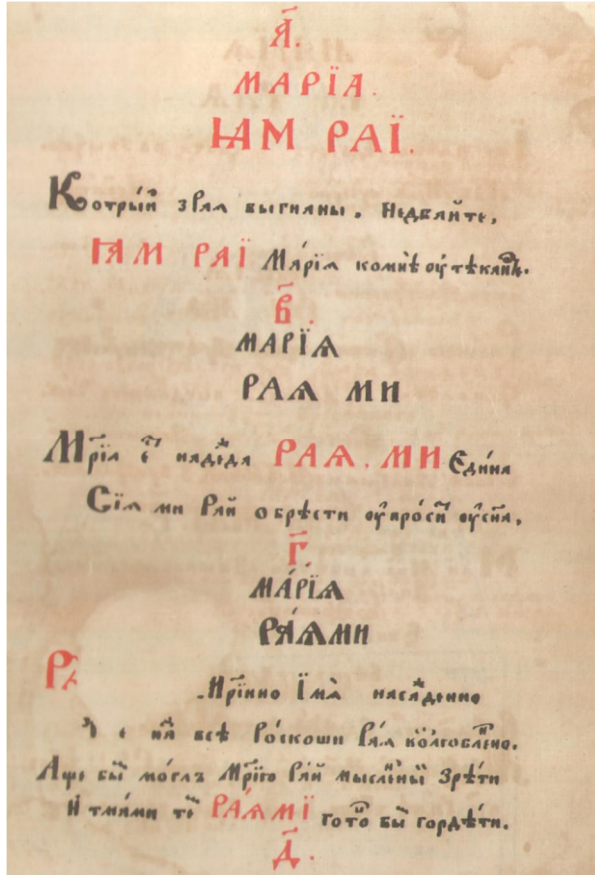 А҃.
МАРЇА.
ꙖМ РАЇ.
Которы́й з Рая выгнаны. Недбайте,
ꙖМ РАЇ Ма́рїа комнѣ оутѣкайте.
В҃.
МАРЇѦ
РАѦ МИ
Мр҃їа є҆ надѣ́жда РАѦ. МИ Еди́на
Сїѧ ми Рай обрѣсти оу҆проси оу҆ сн҃а.
Г҃.
МА́РЇѦ
РА́ѦМИ
Ра
Мр҃їинно Їмѧ̀ насажденно
на́ всѣ Ро́скоши Раѧ
Аще бы́ мо́глъ Мр҃їю Ра́й мысле́ны́й Зрѣ́ти
И тма́ми ты́ РАѦМЇ гото́в бы́ горѣ́ти.
Д҃.